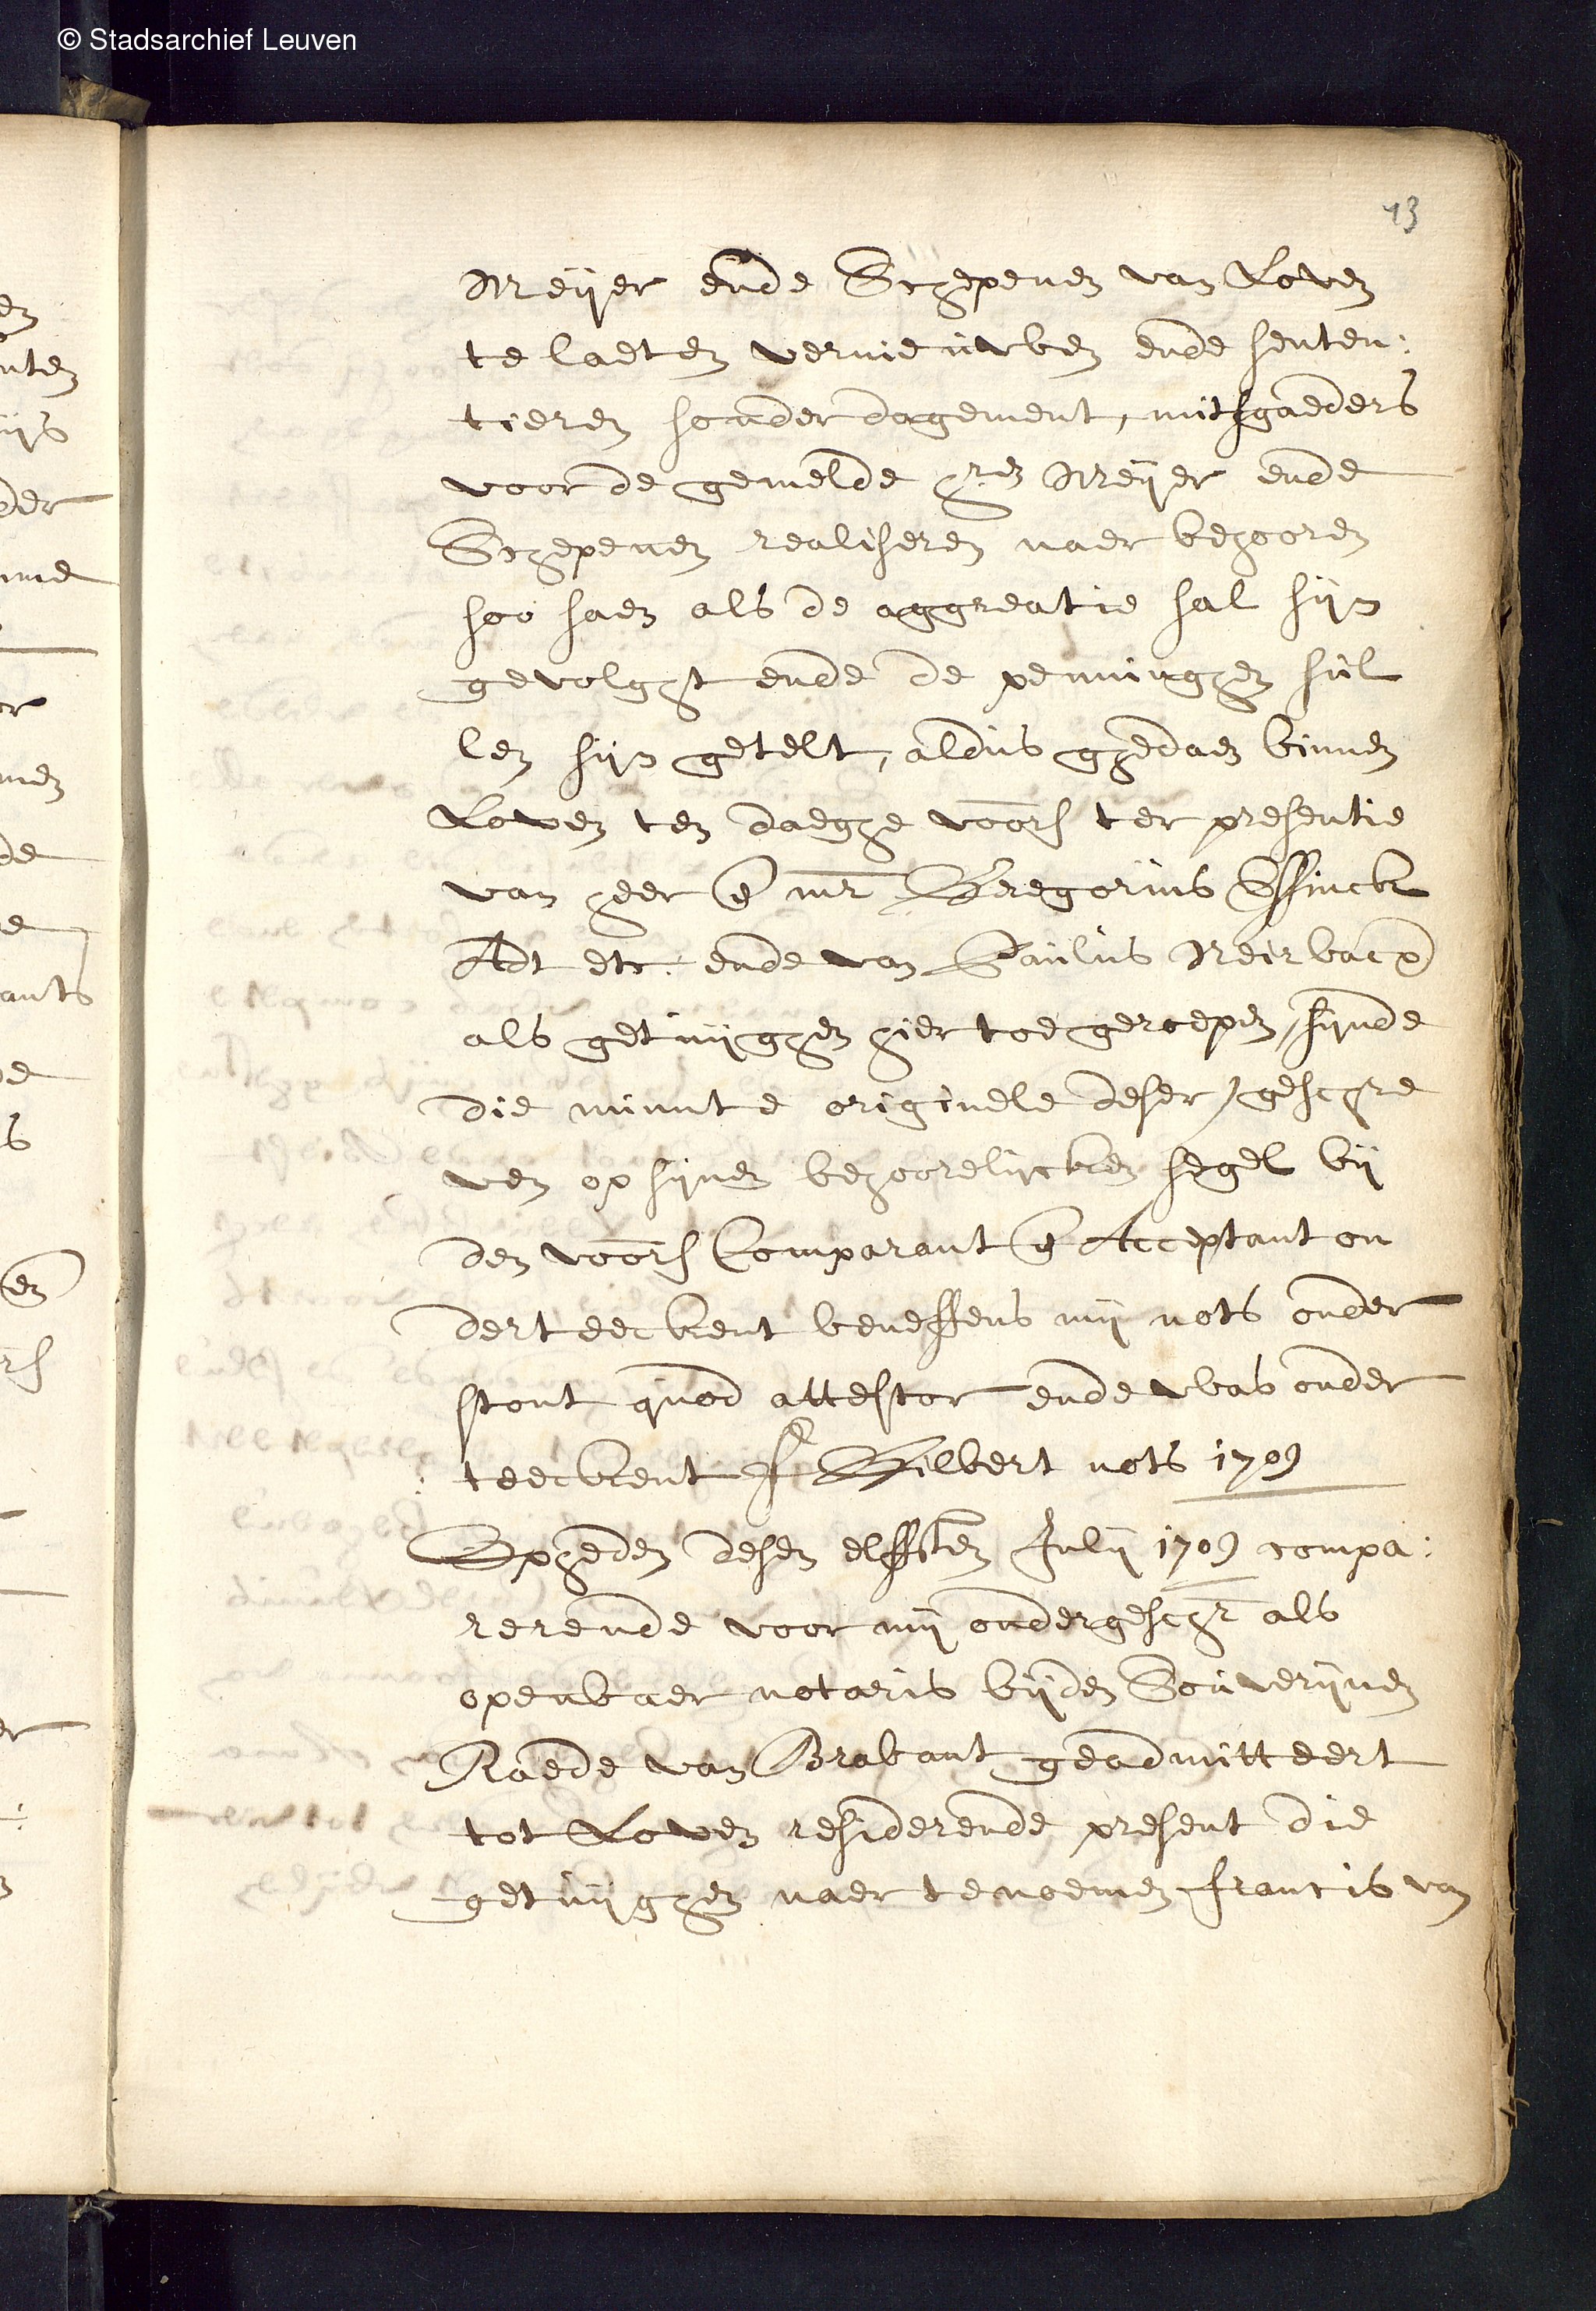 © Stadsarchief Leuven
43
Meijer ende Schepenen van Loven
te laeten vernieuwen ende senten:
tieren sonder dagement, mitsgaeders
voor de gemelde hren Meijer ende
Schepenen realiseren naer behooren
soo saen als de aggreatie sal sijn
gevolght ende de penninghen sul
len sijn getelt, aldus ghedaen binnen
Loven ten daeghe voors ter presentie
van heer e mr Gregorius
Adt etc. ende van Paulus
als getuijghen hier toe geroepen, sijnde
die minute originele deser, geschre
ven op sijnen behoorelijcken segel bij
den voors Comparant e Acceptant on
derteeckent beneffens mij nots onder
stont quod attestor ende was onder
teeckent Gilbert nots 1709
Opheden desen elffsten Julij 1709 compa:
rerende voor mij ondergeschr als
openbaer notaris bijden Souverijnen
Raede van Brabant geadmitteert
tot Loven residerende present die
getuijghen naer te noemen francis van